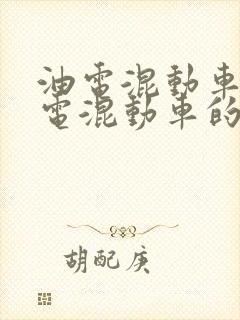 油電混動車
電混動車的
胡配庚